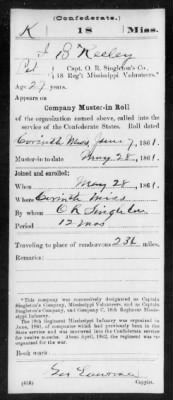 (Confederate.)
K 18 Miss.
J B Kelley
Pvt Capt. O. R. Singleton's Co.,
18 Reg't Mississippi Volunteers.*
Age 27 years.
Appears on
Company Muster-in Roll
of the organization named above, called into the
service of the Confederate States. Roll dated
Corinth Miss, June 7, 1861.
Muster-in to date May 28, 1861.
Joined and enrolled:
When May 28, 1861.
Where Corinth Miss
By whom O R Singleton
Period 12 mos
Traveling to place of rendezvous 236 miles.
Remarks:
*This company was successively designated as Captain
Singleton's Company, Mississippi Volunteers, and as Captain
Singleton's Company, and Company C, 18th Regiment Mississippi
Infantry.
The 18th Regiment Mississippi Infantry was organized in
June, 1861, of companies which had previously been in the
State service and was mustered into the Confederate service
for twelve months. About April, 1862, the regiment was re-
organized for the war.
Book mark:
Copyist.